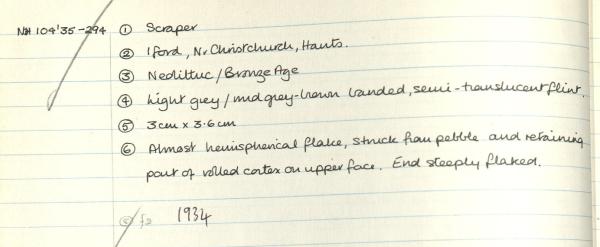 NH 104'35-294 ① Scraper
② Iford, Nr Christchurch, Hants.
③ Neolithic/Bronze Age
④ Light grey/mid grey-brown banded, semi-translucent flint.
⑤ 3cm x 3.6cm
⑥ Almost hemispherical flake, struck from pebble and retaining
part of rolled cortex on upper face. End steeply flaked.
1934